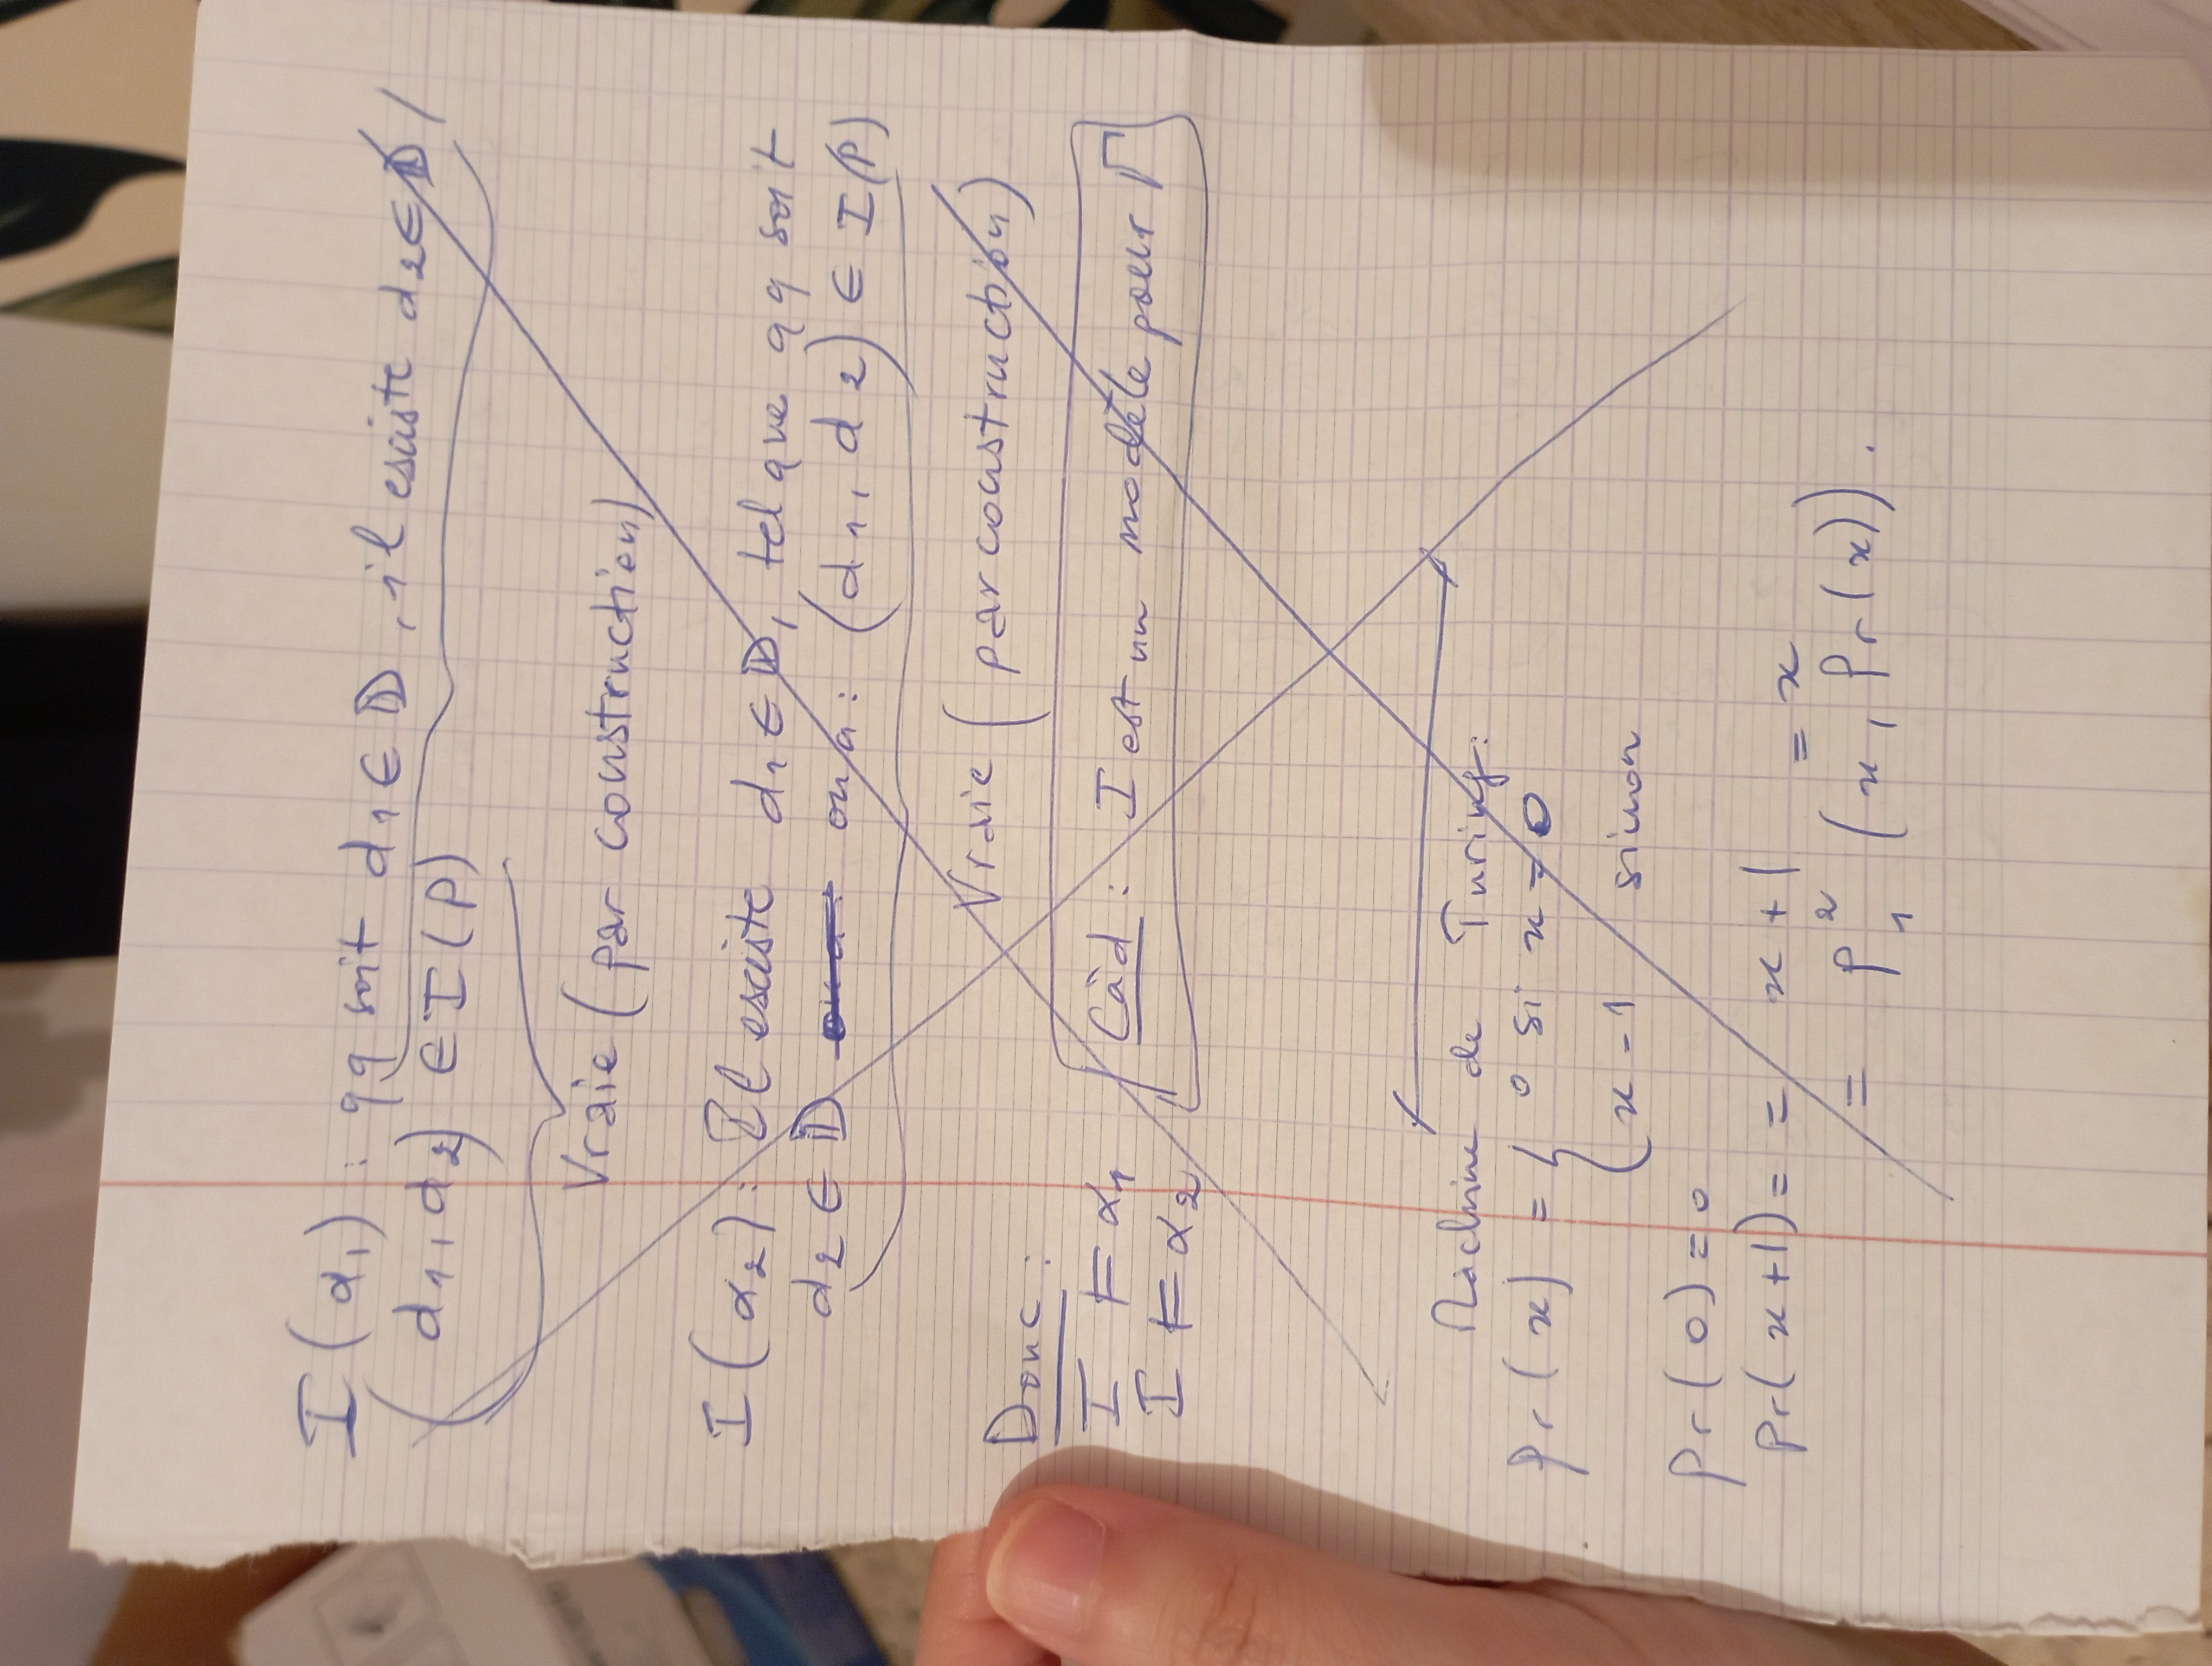 I(α₁) : qq soit d₁ ∈ 𝔻, il existe d₂ ∈ 𝔻 /
(d₁, d₂) ∈ I(P)
Vraie (par construction)
I(α₂) : Il existe d₁ ∈ 𝔻, tel que qq soit
d₂ ∈ 𝔻 on a : (d₁, d₂) ∈ I(P)
Vraie (par construction)
Donc :
I ⊨ α₁
I ⊨ α₂
Càd : I est un modèle pour Γ
Machine de Turing :
Pr(x) = { 0 si x = 0
x - 1 sinon
Pr(0) = 0
Pr(x+1) = = x + 1 = x
= P²₁ (x, Pr(x)).